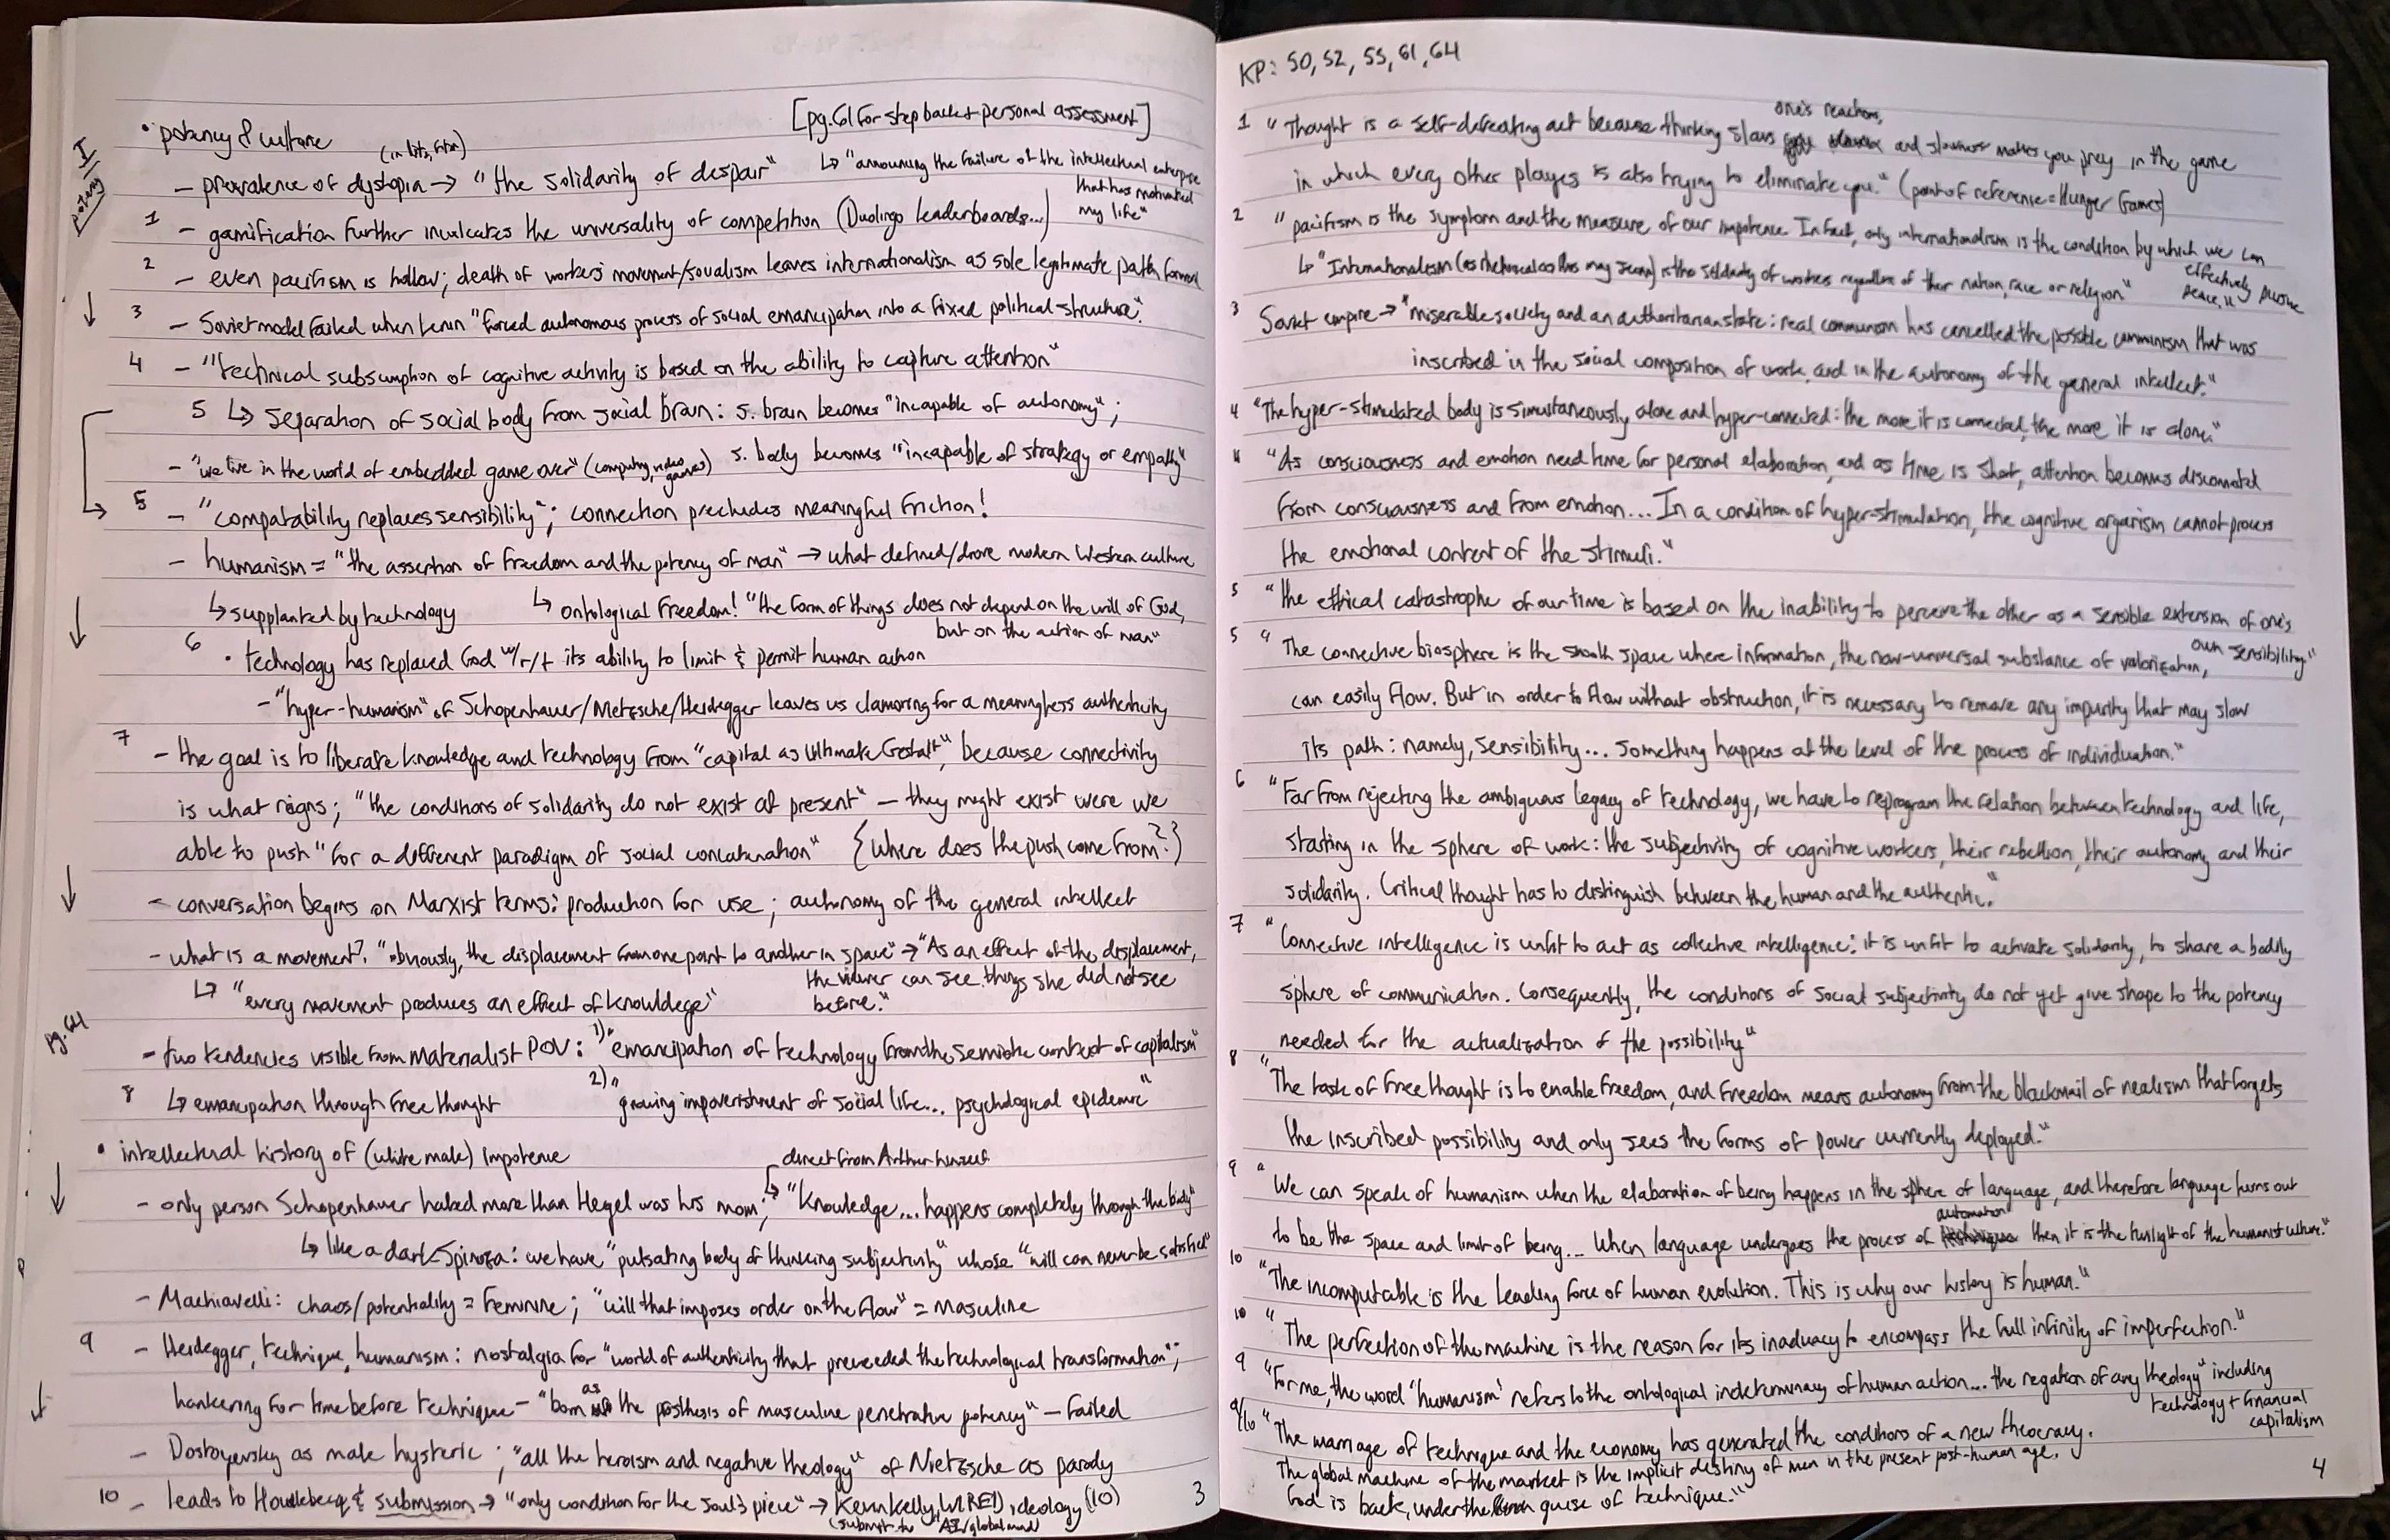 [pg. 61 for step back + personal assessment]
I
potency
• potency & culture
(in lit, film)
– prevalence of dystopia → "the solidarity of despair" ↳ "announcing the failure of the intellectual enterprise
that has motivated
my life"
1 – gamification further inculcates the universality of competition (Duolingo leaderboards...)
2 – even pacifism is hollow; death of workers' movement/socialism leaves internationalism as sole legitimate path forward
3 – Soviet model failed when Lenin "forced autonomous process of social emancipation into a fixed political structure."
4 – "technical subsumption of cognitive activity is based on the ability to capture attention"
5 ↳ separation of social body from social brain: s. brain becomes "incapable of autonomy";
s. body becomes "incapable of strategy or empathy"
– "we live in the world of embedded game over" (computing, video games)
5 – "compatability replaces sensibility"; connection precludes meaningful friction!
– humanism = "the assertion of freedom and the potency of man" → what defined/drove modern Western culture
↳ supplanted by technology ↳ ontological freedom! "the form of things does not depend on the will of God,
but on the action of man"
6 • technology has replaced God w/r/t its ability to limit & permit human action
– "hyper-humanism" of Schopenhauer/Nietzsche/Heidegger leaves us clamoring for a meaningless authenticity
7 – the goal is to liberate knowledge and technology from "capital as Ultimate Gestalt", because connectivity
is what reigns; "the conditions of solidarity do not exist at present" – they might exist were we
able to push "for a different paradigm of social concatenation" {Where does the push come from?}
– conversation begins on Marxist terms: production for use; autonomy of the general intellect
– what is a movement? "obviously, the displacement from one point to another in space" → "As an effect of the displacement,
the viewer can see things she did not see
before."
↳ "every movement produces an effect of knowldege"
pg. 64
– two tendencies visible from materialist POV: 1) "emancipation of technology from the semiotic context of capitalism"
8 ↳ emancipation through free thought 2) "growing impoverishment of social life... psychological epidemic"
• intellectual history of (white male) impotence
direct from Arthur himself
– only person Schopenhauer hated more than Hegel was his mom; ↳ "Knowledge... happens completely through the body"
↳ like a dark Spinoza: we have "pulsating body of thinking subjectivity" whose "will can never be satisfied"
– Machiavelli: chaos/potentiality = feminine; "will that imposes order on the flow" = masculine
9 – Heidegger, technique, humanism: nostalgia for "world of authenticity that preceeded the technological transformation";
hankering for time before technique – "born as the prosthesis of masculine penetrative potency" – failed
– Dostoyevsky as male hysteric; "all the heroism and negative theology" of Nietzsche as parody
10 – leads to Houellebecq & submission → "only condition for the soul's piece" → Kevin Kelly, WIRED, ideology (10)
(submit to "AI/global mind)
3
KP: 50, 52, 55, 61, 64
1 "Thought is a self-defeating act because thinking slows one's reactions, and slowness makes you prey in the game
in which every other player is also trying to eliminate you." (point of reference = Hunger Games)
2 "pacifism is the symptom and the measure of our impotence. In fact, only internationalism is the condition by which we can
effectively pursue
peace."
↳ "Internationalism (as rhetorical as this may seem) is the solidarity of workers regardless of their nation, race or religion"
3 Soviet empire → "miserable society and an authoritarian state: real communism has cancelled the possible communism that was
inscribed in the social composition of work, and in the autonomy of the general intellect."
4 "The hyper-stimulated body is simultaneously alone and hyper-connected: the more it is connected, the more it is alone."
4 "As consciousness and emotion need time for personal elaboration, and as time is short, attention becomes disconnected
from consciousness and from emotion... In a condition of hyper-stimulation, the cognitive organism cannot process
the emotional content of the stimuli."
5 "the ethical catastrophe of our time is based on the inability to perceive the other as a sensible extension of one's
own sensibility"
5 "The connective biosphere is the smooth space where information, the now-universal substance of valorization,
can easily flow. But in order to flow without obstruction, it is necessary to remove any impurity that may slow
its path: namely, sensibility... something happens at the level of the process of individuation."
6 "Far from rejecting the ambiguous legacy of technology, we have to reprogram the relation between technology and life,
starting in the sphere of work: the subjectivity of cognitive workers, their rebellion, their autonomy and their
solidarity. Critical thought has to distinguish between the human and the authentic."
7 "Connective intelligence is unfit to act as collective intelligence: it is unfit to activate solidarity, to share a bodily
sphere of communication. Consequently, the conditions of social subjectivity do not yet give shape to the potency
needed for the actualization of the possibility"
8 "The task of free thought is to enable freedom, and freedom means autonomy from the blackmail of realism that forgets
the inscribed possibility and only sees the forms of power currently deployed."
9 "We can speak of humanism when the elaboration of being happens in the sphere of language, and therefore language turns out
to be the space and limit of being... When language undergoes the process of automation then it is the twilight of the humanist culture."
10 "The incomputable is the leading force of human evolution. This is why our history is human."
10 "The perfection of the machine is the reason for its inaduacy to encompass the full infinity of imperfection."
9 "For me, the word 'humanism' refers to the ontological indeterminacy of human action... the negation of any theology" including
technology + financial
capitalism
9/10 "The marriage of technique and the economy has generated the conditions of a new theocracy.
The global machine of the market is the implicit destiny of men in the present post-human age.
God is back, under the guise of technique."
4